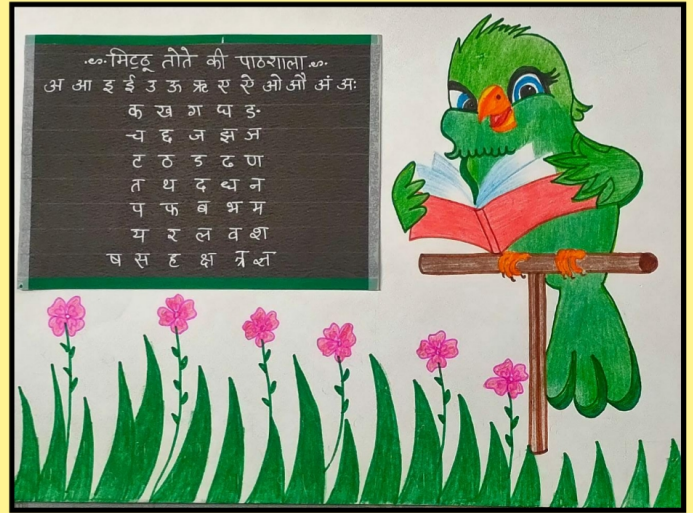 मिट्ठू तोते की पाठशाला
अ आ इ ई उ ऊ ऋ ए ऐ ओ औ अं अः
क ख ग घ ङ
च छ ज झ ञ
ट ठ ड ढ ण
त थ द ध न
प फ ब भ म
य र ल व श
ष स ह क्ष त्र ज्ञ